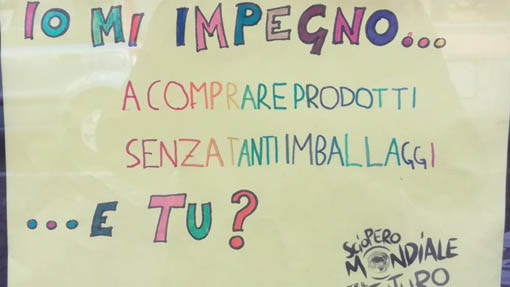 IO MI IMPEGNO...
A COMPRARE PRODOTTI
SENZA TANTI IMBALLAGGI
...E TU?
SCIOPERO
MONDIALE